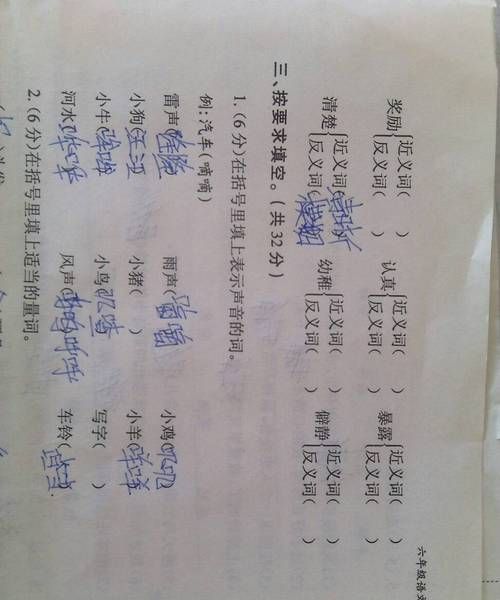 六年级语文
奖励{近义词(    ) 反义词(    )  认真{近义词(    ) 反义词(    )  暴露{近义词(    ) 反义词(    )
清楚{近义词(清晰) 反义词(模糊)  幼稚{近义词(    ) 反义词(    )  僻静{近义词(    ) 反义词(    )
三、按要求填空。(共32分)
1.(6分)在括号里填上表示声音的词。
例:汽车(嘀嘀)
雷声(隆隆)  雨声(  )  小鸡(叽叽)
小狗(汪汪)  小猪(    )  小羊(咩咩)
小牛(  )  小鸟(  )  写字(    )
河水(哗哗)  风声(呼呼)  车铃(  )
2.(6分)在括号里填上适当的量词。